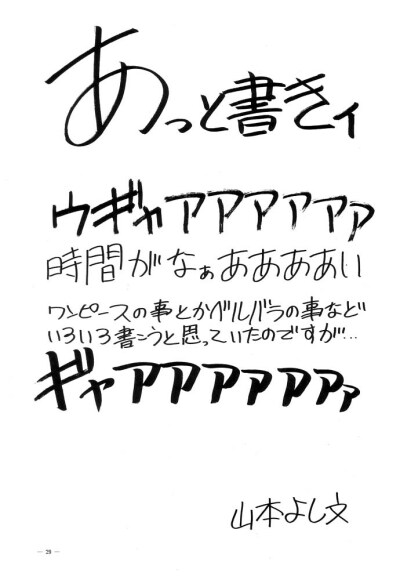 あっと書きィ
ウギャアアアアァァ
時間がなぁああああい
ワンピースの事とかベルバラの事など
いろいろ書こうと思っていたのですが…
ギャアアアァァァァ
山本よし文
— 29 —